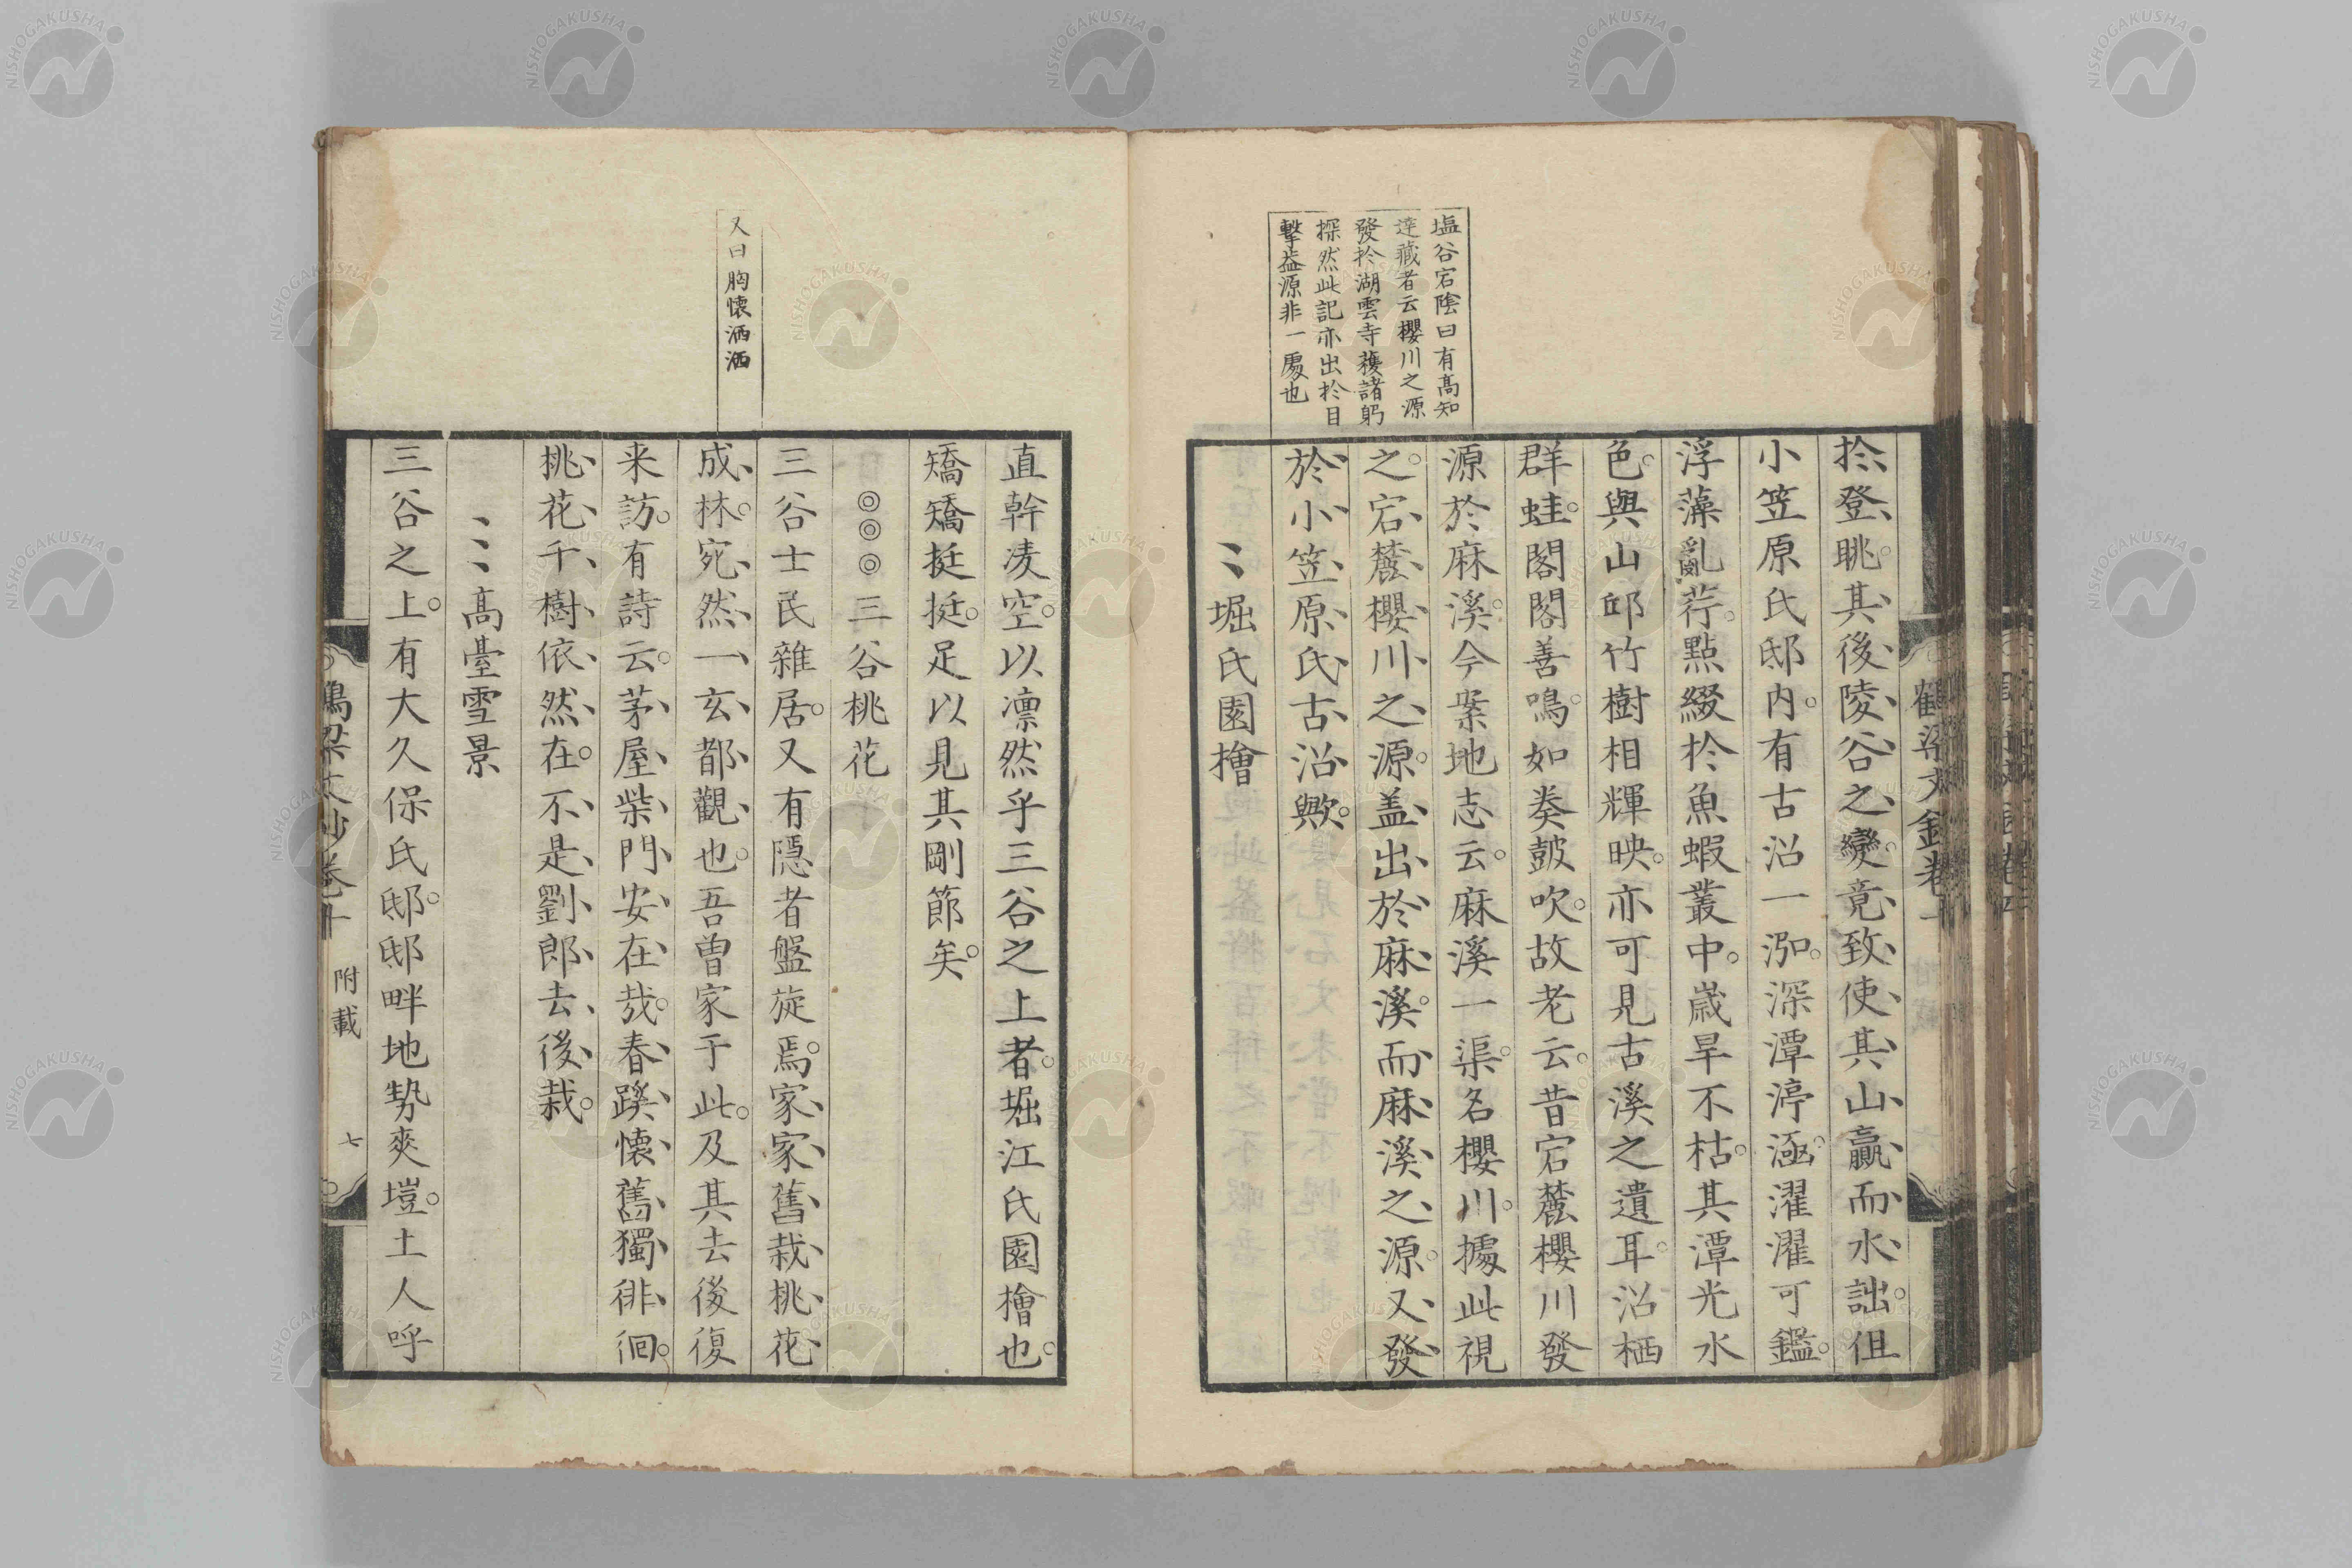 塩谷宕陰曰有髙知
達藏者云櫻川之源
發扵湖雲寺蓋諸躬
探然此記亦出扵目
擊益源非一處也
扵登眺其後陵谷之變竟致使其山贏而水詘但
小笠原氏邸内有古沼一泓深潭渟涵濯濯可鑑
浮藻亂荇點綴扵魚蝦叢中歳旱不枯其潭光水
色與山邱竹樹相輝映亦可見古溪之遺耳沼栖
群蛙閣閣善鳴如奏皷吹故老云昔宕麓櫻川發
源於麻溪今案地志云麻溪一渠名櫻川據此視
之宕麓櫻川之源盖出於麻溪而麻溪之源又發
於小笠原氏古沼歟
堀氏園檜
又曰胸懐洒洒
直幹凌空以凛然乎三谷之上者堀江氏園檜也
矯矯挺挺足以見其剛節矣
◎◎◎三谷桃花
三谷士民雜居又有隠者盤旋焉家家舊栽桃花
成林宛然一玄都觀也吾曽家于此及其去後復
来訪有詩云茅屋柴門安在哉春蹊懐舊獨徘徊
桃花千樹依然在不是劉郎去後栽
髙臺雪景
三谷之上有大久保氏邸邸畔地勢爽塏土人呼
鶴梁文鈔巻十 附載 七
NISHOGAKUSHA